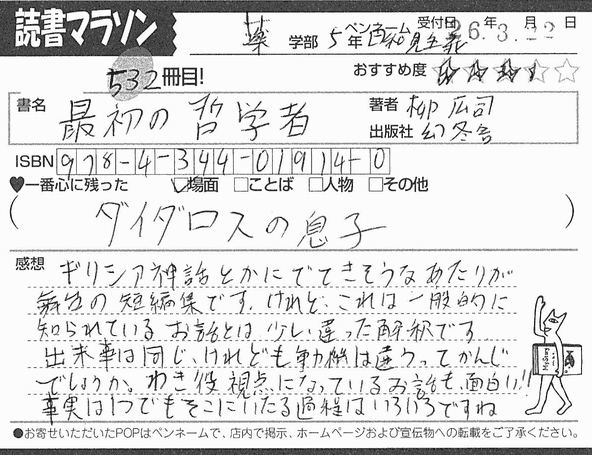 読書マラソン
薬 学部 5年 ペンネーム 受付日 26年3月22日
532冊目!
おすすめ度
書名 最初の哲学者
著者 柳広司
出版社 幻冬舎
ISBN 978-4-344-01914-0
♥一番心に残った ☑場面 □ことば □人物 □その他
(ダイダロスの息子)
感想 ギリシア神話とかにでてきそうなあたりが
舞台の短編集です。けれど、これは一般的に
知られているお話とは少し違った解釈です
出来事は同じ、けれども動機は違うってかんじ
でしょうか。わき役視点になっているお話も、面白い!!
事実は1つでもそこにいたる過程はいろいろですね
●お寄せいただいたPOPはペンネームで、店内で掲示、ホームページおよび宣伝物への転載をご了承ください。